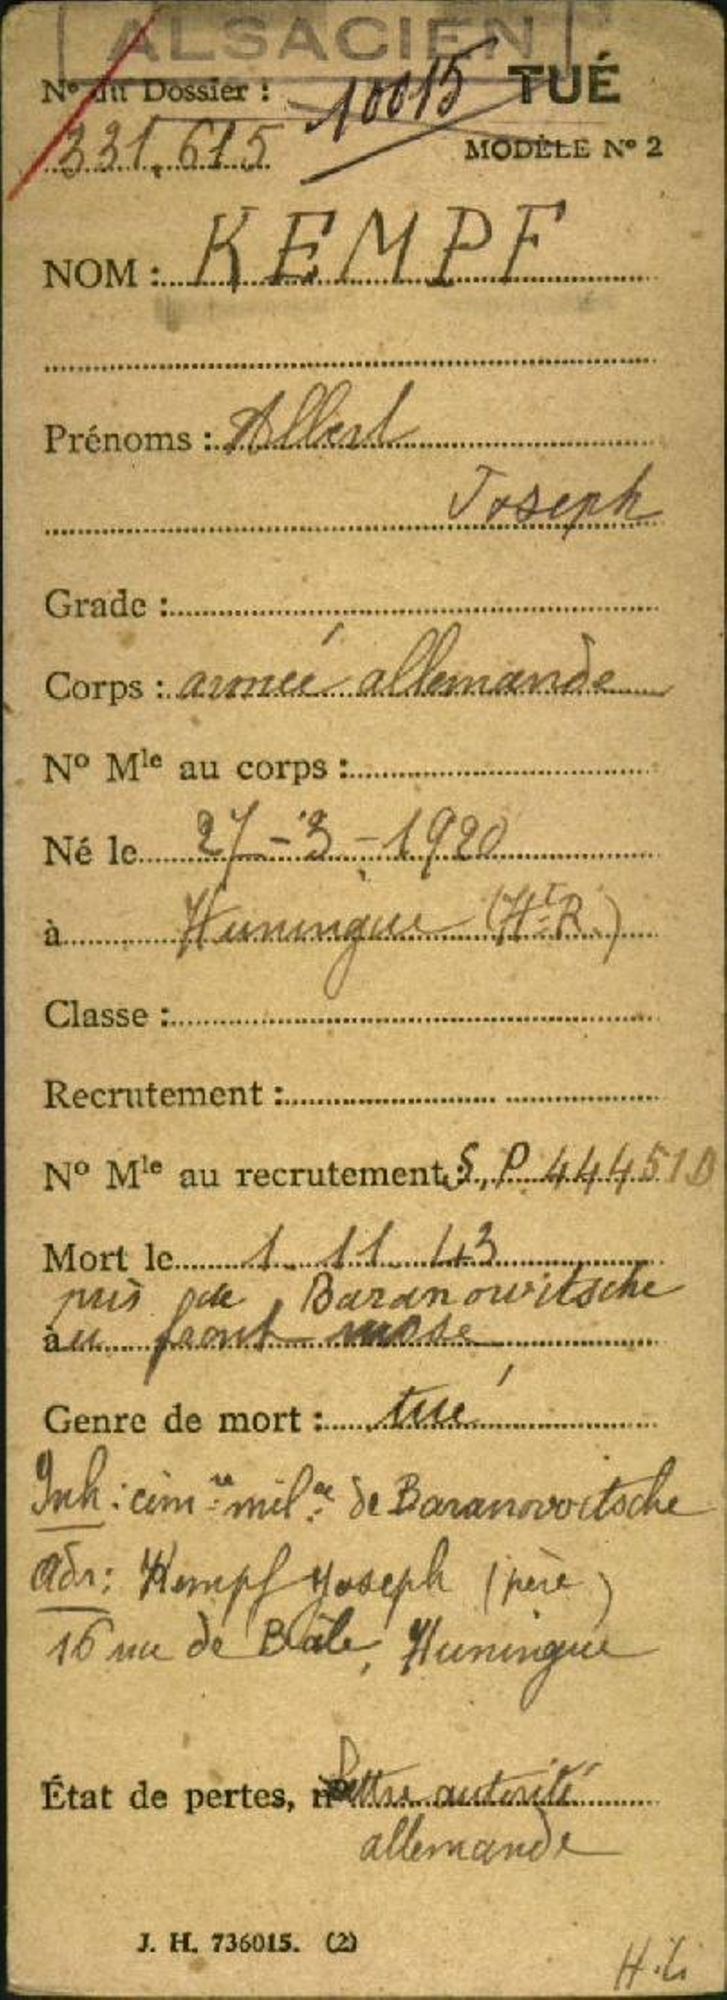 ALSACIEN
N° du Dossier : 10015 TUÉ
331.615 MODÈLE N° 2
NOM : KEMPF
Prénoms : Albert
Joseph
Grade :
Corps : armée allemande
N° Mle au corps :
Né le 27-3-1920
à Huningue (Ht-R.)
Classe :
Recrutement :
N° Mle au recrutement : S.P. 44451 D
Mort le 1 11 43
près de Baranowitsche
au front russe
Genre de mort : tué
Inh : cimre milre de Baranovoitsche
Adr : Kempf Joseph (père)
16 rue de Bâle, Huningue
État de pertes, n° lettre autorité
allemande
J. H. 736015. (2)